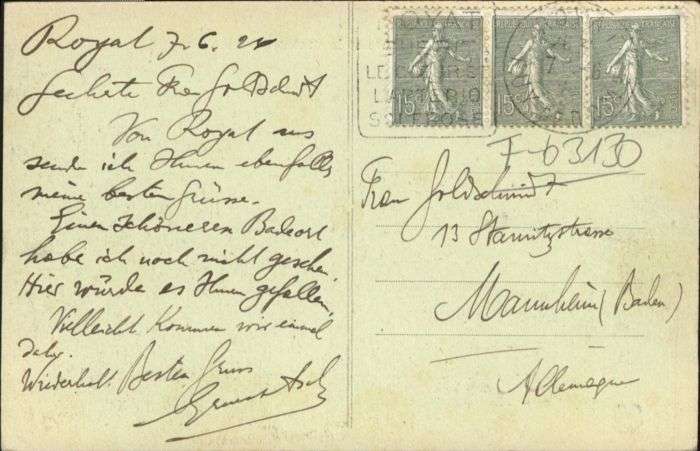 Royat 7.6.24
Geehrte Frau Goldschmidt
Von Royat aus
sende ich Ihnen ebenfalls
meine besten Grüsse.
Einen schöneren Badeort
habe ich noch nicht gesehen
Hier würde es Ihnen gefallen,
Vielleicht kommen wir einmal
Wiederholt Besten Gruss
ROYAT
L'ARTERIO
SCLEROSE
15
15
15
F-63130
Frau Goldschmidt
13 Stamitzstrasse
Mannheim (Baden)
Allemagne